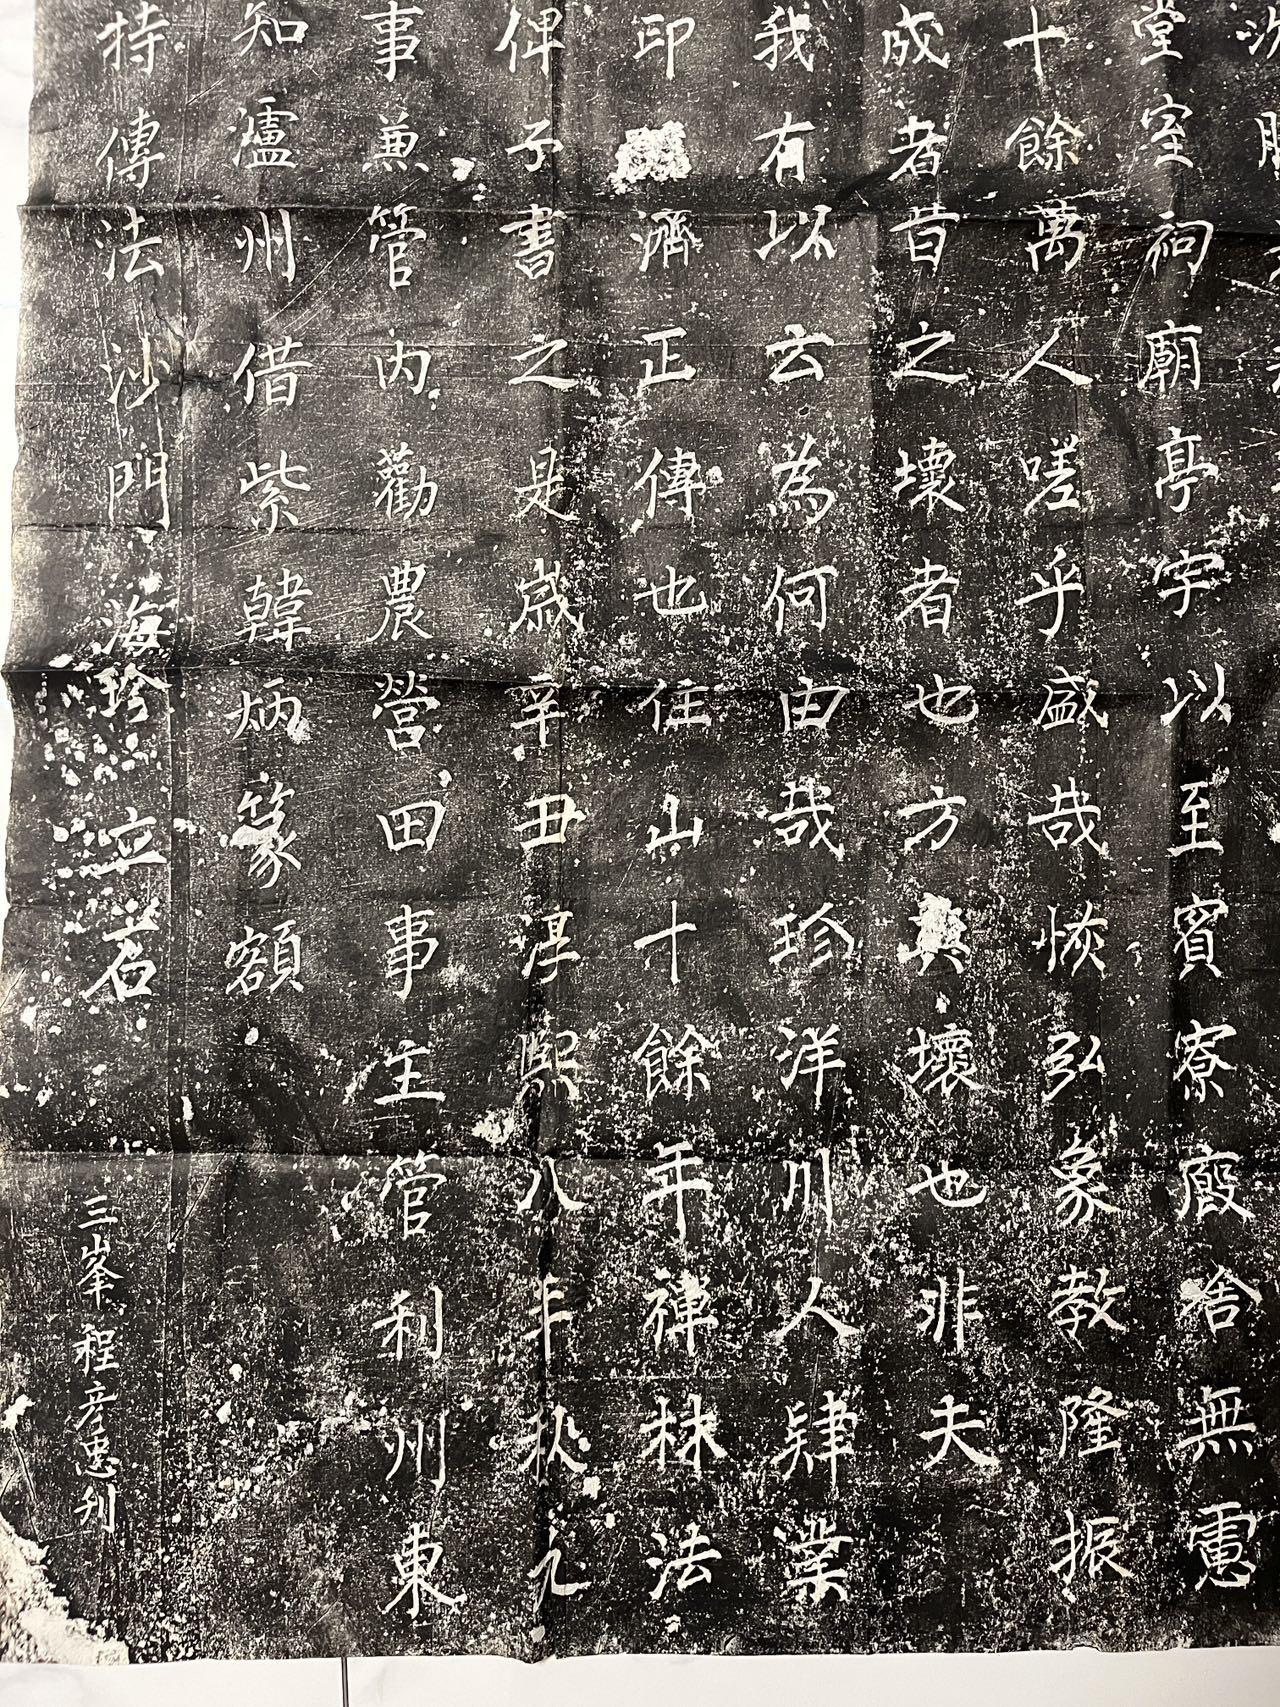 堂室祠廟亭宇以至賓寮廄舍無慮
十餘萬人嗟乎盛哉恢弘象教隆振
成者昔之壞者也方興壞也非夫
我有以云為何由哉珍洋川人肄業
印濟正傳也住山十餘年禪林法
俾予書之是歲辛丑淳熙八年秋元
事兼管內勸農營田事主管利州東
知瀘州借紫韓炳篆額
持傳法沙門海珍立石
三峯程彥忠刋